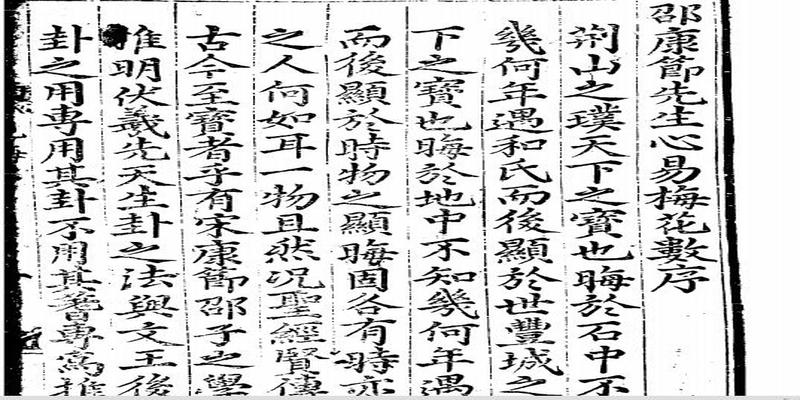 邵康節先生心易梅花數序
荊山之璞天下之寶也晦於石中不
幾何年遇和氏而後顯於世豐城之
下之寶也晦於地中不知幾何年遇
而後顯於時物之顯晦固各有時亦
之人何如耳一物且然况聖經賢傳
古今至寶者乎有宋康節邵子之學
推明伏羲先天生卦之法與文王後
卦之用專用其卦不用其蓍專為推